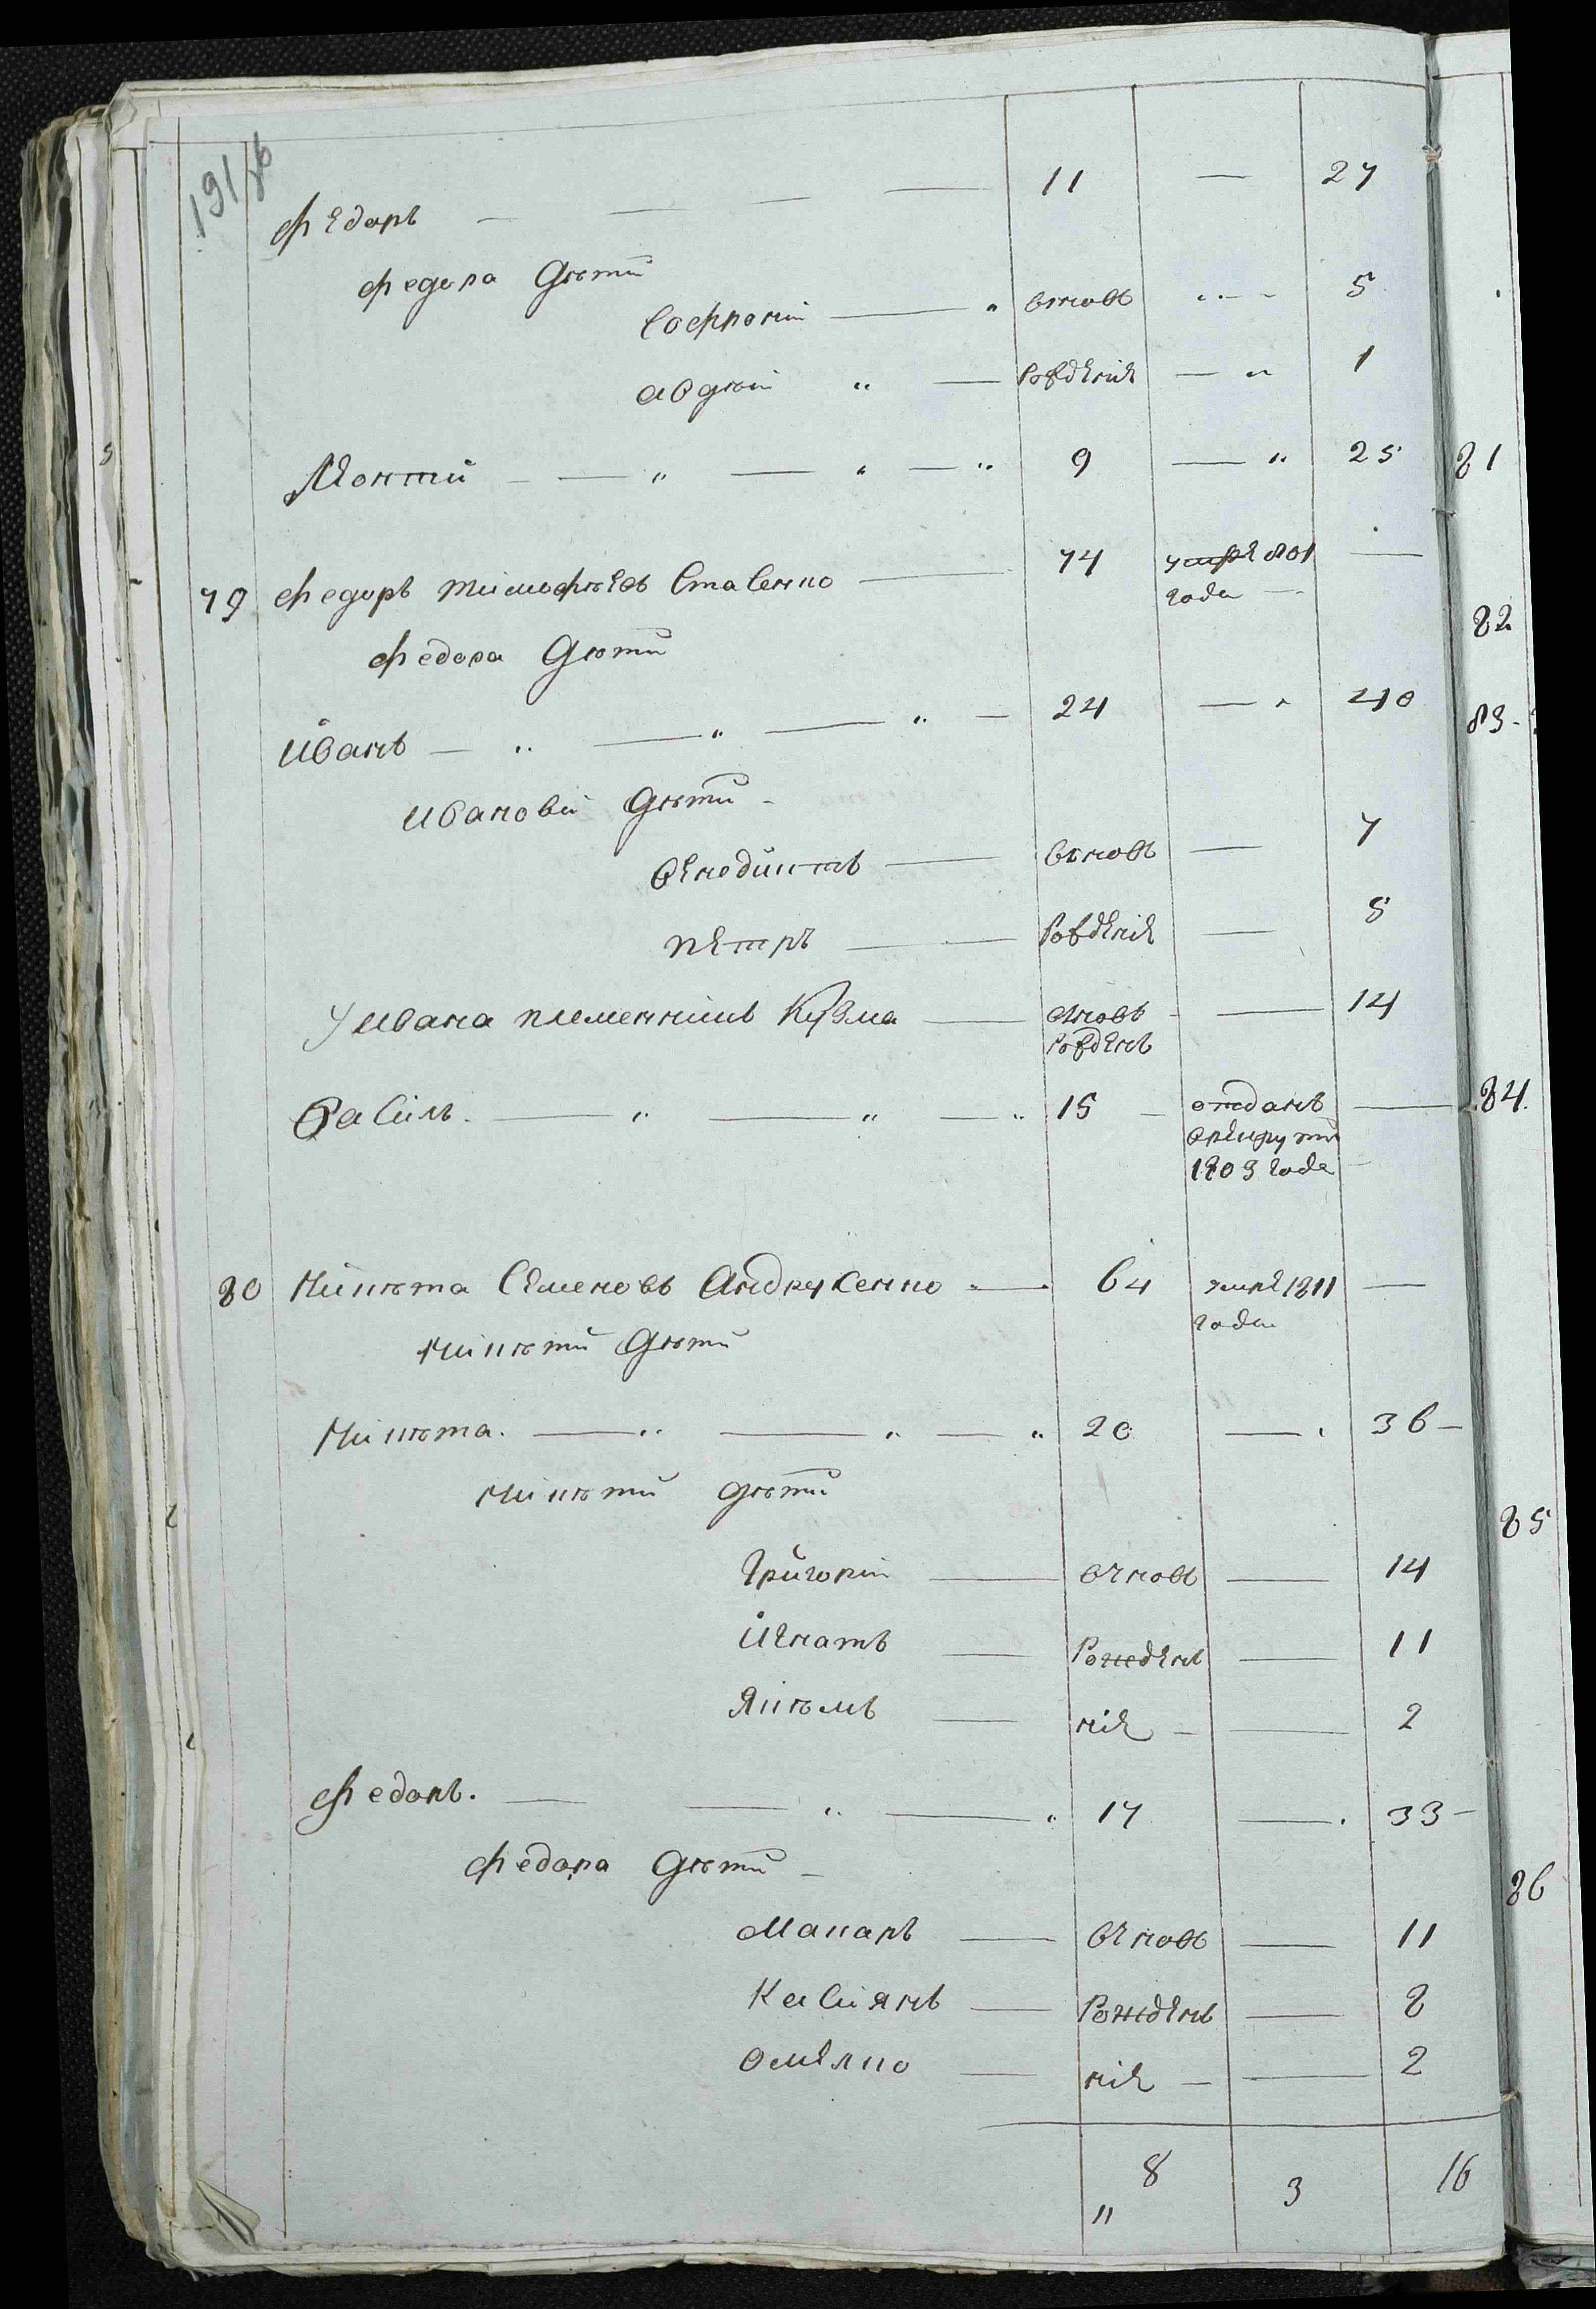 191 об
Федоръ — — — — 11 — 27
Федора дѣти
Софроній — " вновь " — " 5
Авдѣй " — рожденіе — " 1
Леонтій — — " — " — " 9 — " 25
79 Федоръ Тимофѣевъ Стасенко — 74 умре 801 —
года —
Федора дѣти
Иванъ — " — " — " — 24 — " 40
Ивановы дѣти -
Венедиктъ — вновь — 7
Петръ — рожденіе — 5
У Ивана племенникъ Кузма — вновь — 14
рожденъ
Василь. — " — " — " 15 — отданъ —
врекруты
1803 года —
80 Никѣта Семеновъ Андрусенко — 64 умре 1811 —
года
Никѣты дѣти
Никѣта. — " — " — " 20 — " 36 —
Никѣты дѣти
Григорій — вновь — 14
Игнатъ — рожден — 11
Якѣмъ — ніе — — 2
Федоръ. — — " — " 17 — . 33 —
Федора дѣти —
Макаръ — вновь — 11
Касиянъ — рожден — 8
Омелко — ніе — — 2
" 8 3 16
81
82
83 -
84.
85
86